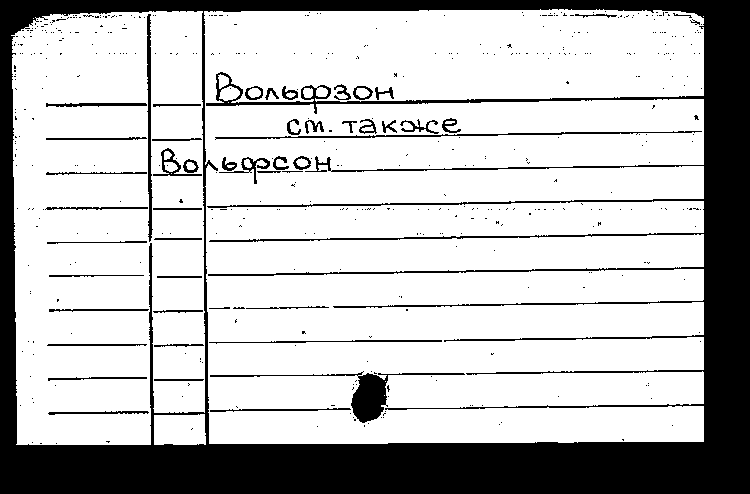 Вольфзон
см. также
Вольфсон